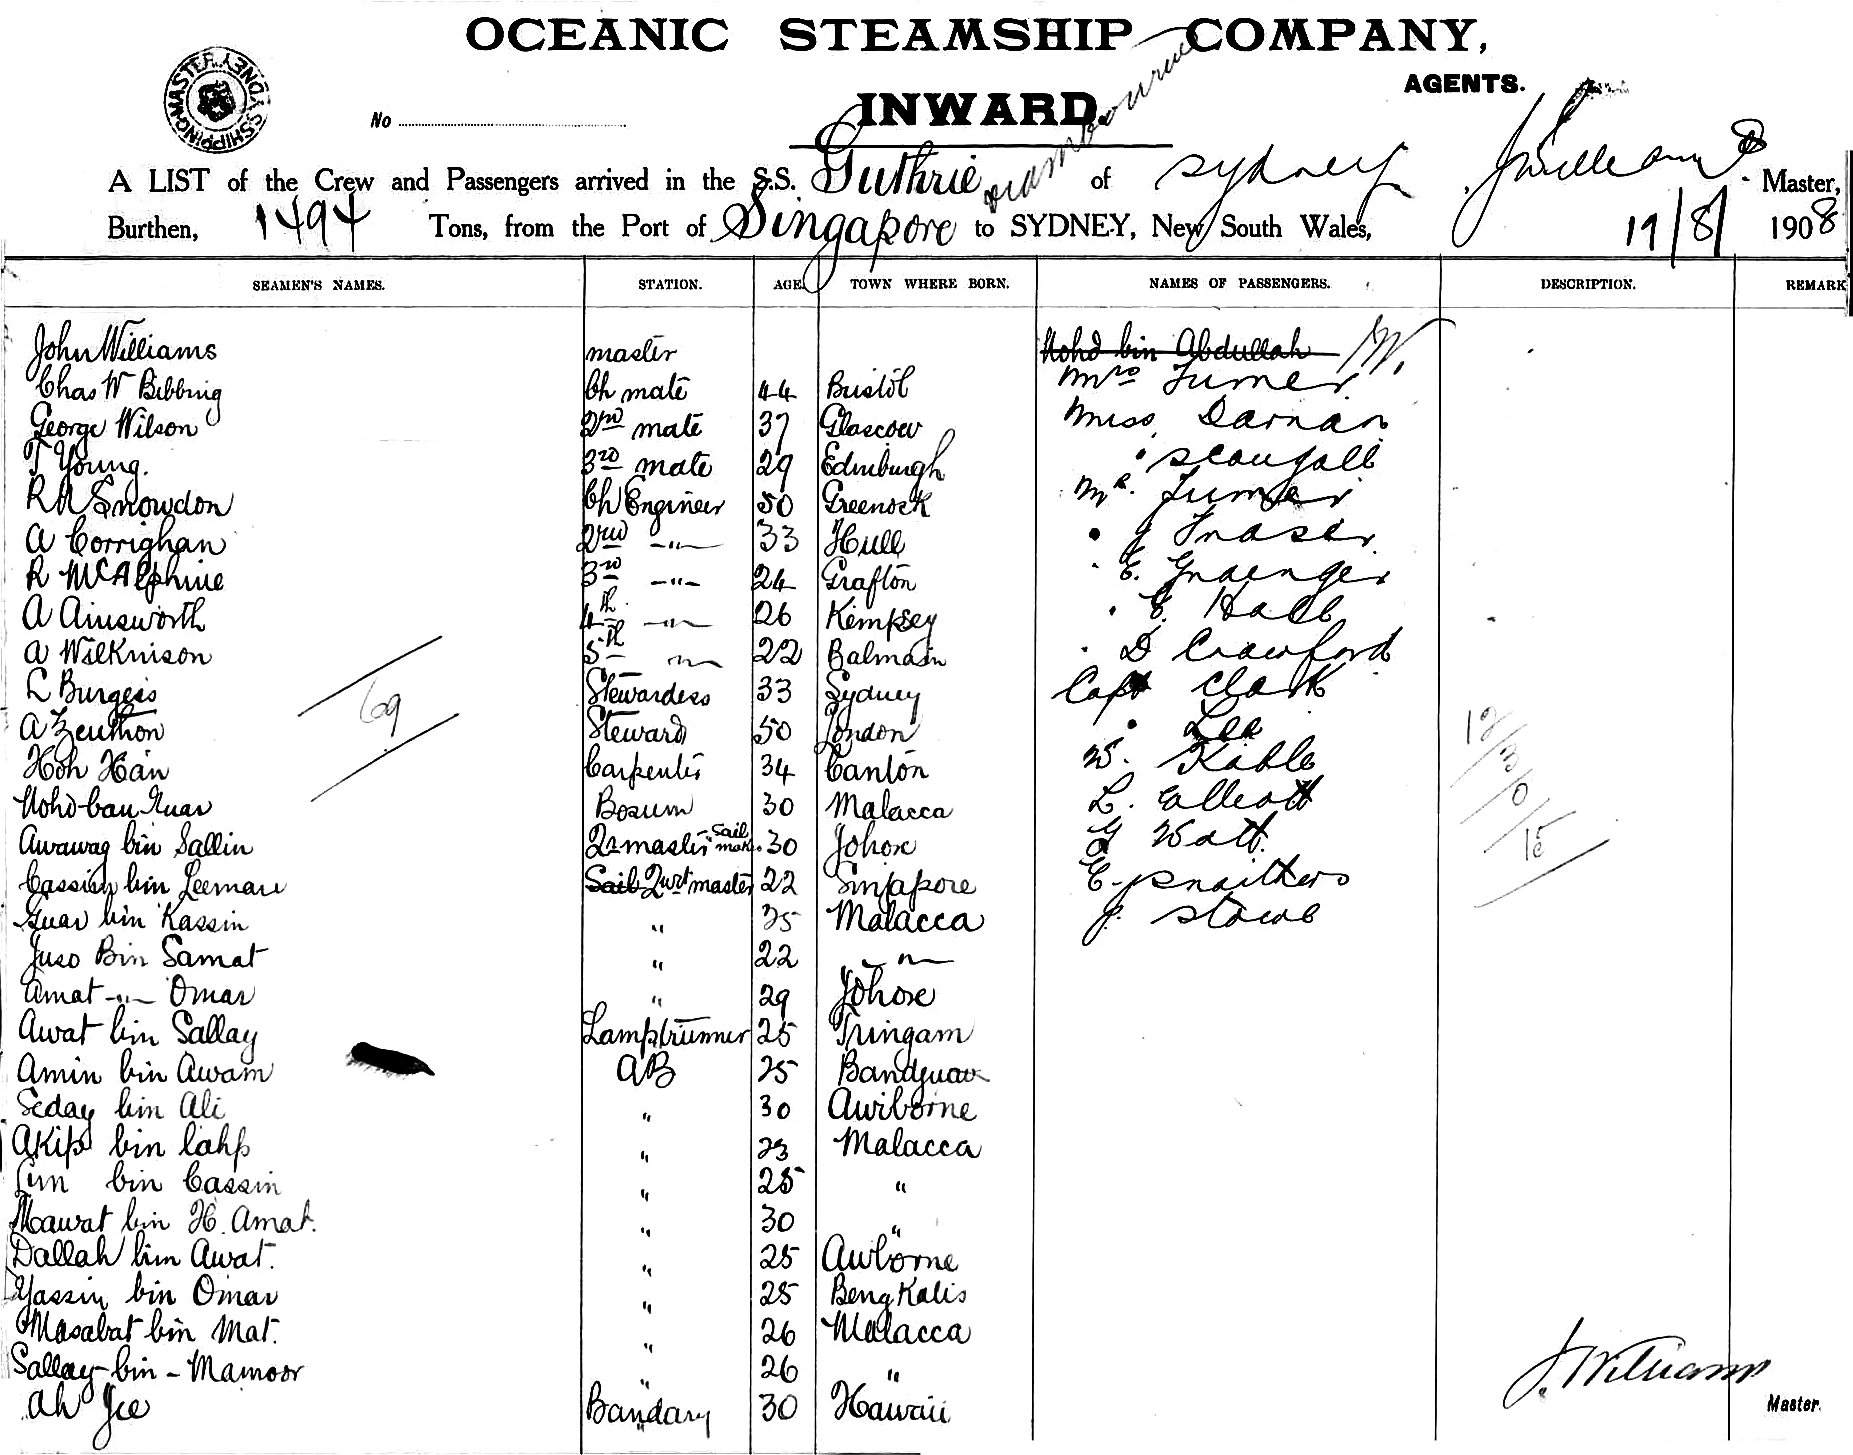 OCEANIC STEAMSHIP COMPANY,
AGENTS.
SHIPPING MASTER SYDNEY
No
INWARD
A LIST of the Crew and Passengers arrived in the S.S. Guthrie of Sydney J Williams Master,
Burthen, 1494 Tons, from the Port of Singapore to SYDNEY, New South Wales, 19/8/ 1908
SEAMEN'S NAMES. STATION. AGE. TOWN WHERE BORN. NAMES OF PASSENGERS. DESCRIPTION. REMARK
John Williams master Mohd bin Abdullah
Chas W Bibbing Ch mate 44 Bristol Mrs Turner
George Wilson 2nd mate 37 Glascow Miss Darnan
T Young. 3rd mate 29 Edinburgh " Scougall
R A Snowdon Ch Engineer 50 Greenock Mr. Turner
A Corrighan 2nd —"— 33 Hull " J Fraser
R McAlphine 3rd —"— 24 Grafton " E. Grainger
A Ainsworth 4th —"— 26 Kempsey " E. Hall
A Wilkinson 5th —"— 22 Balmain " D Crawford
L Burgess Stewardess 33 Sydney Capt Clark
69
A Zeuthon Steward 50 London " Lee
Hoh Han Carpenter 34 Canton W. Kable
12/3/0/15
Mohd ban Nuar Bosum 30 Malacca L. Elliott
Awawag bin Sallin Qr master Sail mak. 30 Johore G Watt.
Cassim bin Leeman Sail Qurt master 22 Singapore E.
Guar bin Kassin " 35 Malacca J. Stowe
Juso Bin Samat " 22 —"—
Amat —"— Omar " 29 Johore
Awat bin Sallay Lamptrimmer 25 Tringam
Amin bin Awam AB 25
Seday bin Ali " 30 Awiborne
Akip bin Cahp " 23 Malacca
bin Cassin " 25 "
Mawat bin H. Amat. " 30 "
Dallah bin Awat. " 25 Awborne
Yassin bin Omar " 25 Bengkalis
Masabat bin Mat. " 26 Malacca
Sallay bin - Mamoor " 26 "
Ah Jee Bandary 30 Hawaii
J. Williams
Master.